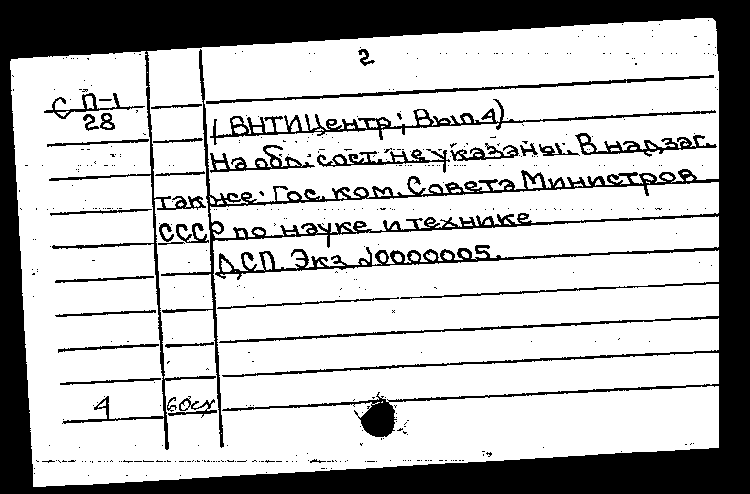 2
С П-1
28
(ВНТИЦентр; Вып.4).
На обл.: сост. не указаны. В надзаг.
также: Гос. ком. Совета Министров
СССР по науке и технике
ДСП. Экз. №0000005.
4